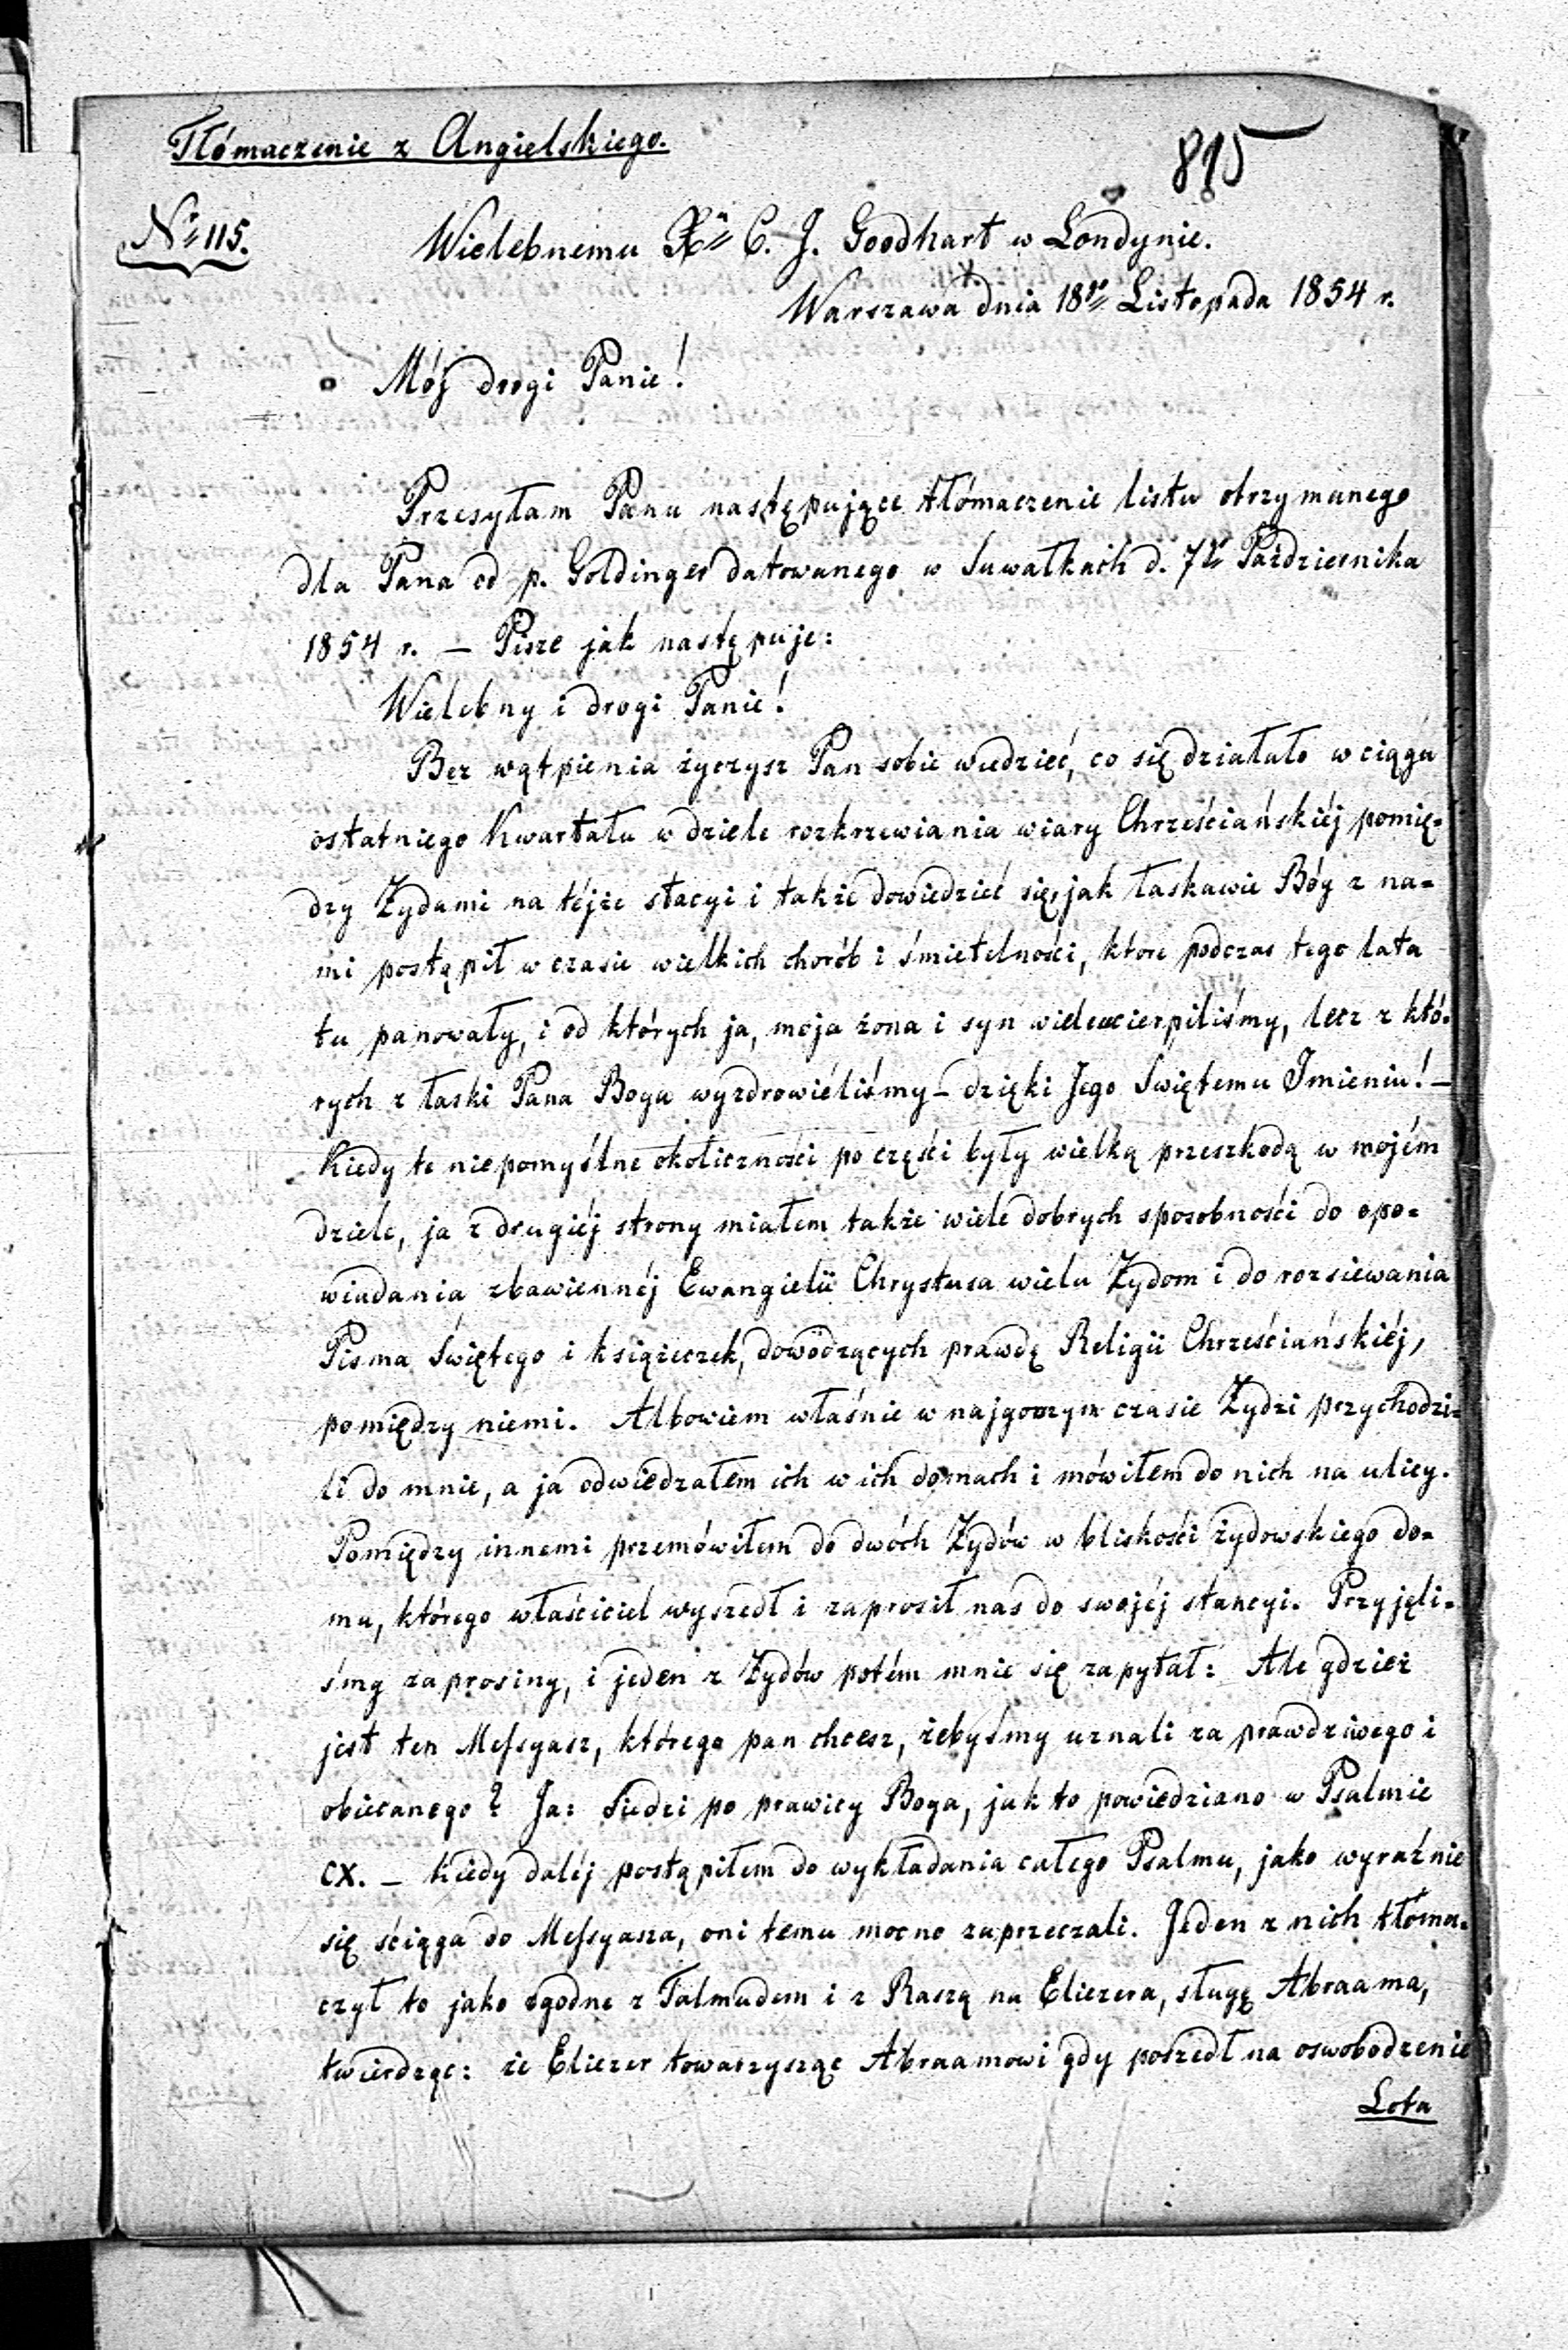 Tłómaczenie z Angielskiego.
815
Nr 115.
Wielebnemu Xu C. J. Goodhart w Londynie.
Warszawa dnia 18go Listopada 1854 r.
Mój drogi Panie!
Przesyłam Panu następujące tłómaczenie listu otrzymanego
dla Pana od p. Goldinger datowanego w Suwałkach d. 7go Października
1854 r. — Pisze jak następuje:
Wielebny i drogi Panie!
Bez wątpienia życzysz Pan sobie wiedzieć, co się działało w ciągu
ostatniego Kwartału w dziele rozkrzewiania wiary Chrześciańskiéj pomię-
dzy Żydami na téjże stacyi i także dowiedzieć się, jak łaskawie Bóg z na-
mi postąpił w czasie wielkich chorób i śmietelności, które podczas tego lata
tu panowały, i od których ja, moja żona i syn wiele ucierpiliśmy, lecz z któ-
rych z łaski Pana Boga wyzdrowiéliśmy — dzięki Jego Swiętemu Imieniu! —
Kiedy te niepomyślne okoliczności po części były wielką przeszkodą w mojém
dziele, ja z drugiéj strony miałem także wiele dobrych sposobności do opo-
wiadania zbawiennéj Ewangielii Chrystusa wielu Żydom i do rozsiewania
Pisma Świętego i książeczek, dowodzących prawdę Religii Chrześciańskiéj,
pomiędzy niemi. Albowiem właśnie w najgorszym czasie Żydzi przychodzi-
li do mnie, a ja odwiedzałem ich w ich domach i mówiłem do nich na ulicy.
Pomiędzy innemi przemówiłem do dwóch Żydów w bliskości żydowskiego do-
mu, którego właściciel wyszedł i zaprosił nas do swojéj stancyi. Przyjęli-
śmy zaprosiny, i jeden z Żydów potém mnie się zapytał: Ale gdzież
jest ten Messyasz, którego pan chcesz, żebyśmy uznali za prawdziwego i
obiecanego? Ja: Siedzi po prawicy Boga, jak to powiedziano w Psalmie
CX. — Kiedy daléj postąpiłem do wykładania całego Psalmu, jako wyraźnie
się ściąga do Messyasza, oni temu mocno zaprzeczali. Jeden z nich tłóma-
czył to jako zgodne z Talmudem i z Raszą na Eliezera, sługę Abraama,
twierdząc: że Eliezer towarzysząc Abraamowi gdy poszedł na oswobodzenie
Lota